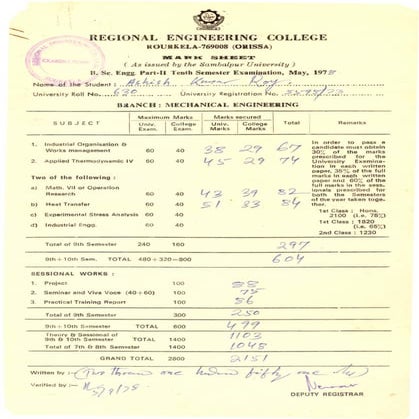 REGIONAL ENGINEERING COLLEGE
ROURKELA-769008 (ORISSA)
MARK SHEET
( As issued by the Sambalpur University )
B. Sc. Engg. Part-II Tenth Semester Examination, May, 1978
Name of the Student: Ashish Kumar Roy.
University Roll No. 630 University Registration No.
BRANCH : MECHANICAL ENGINEERING
SUBJECT Maximum Marks Marks secured Total Remarks
Univ. Exam. College Exam. Univ. Marks College Marks
1. Industrial Organisation & Works management 60 40 38 29 67
2. Applied Thermodynamic IV 60 40 45 29 74
Two of the following :
a) Math. VII or Operation Research 60 40 43 39 82
b) Heat Transfer 60 40 51 33 84
c) Experimental Stress Analysis 60 40
d) Industrial Engg. 60 40
In order to pass a candidate must obtain 30% of the marks prescribed for the University Examination in each written paper, 35% of the full marks in each written paper and 60% of the full marks in the sessionals prescribed for both the Semesters of the year taken together.
1st Class : Hons. 2100 (i.e. 75%)
1st Class : 1820 (i.e. 65%)
2nd Class : 1230
Total of 9th Semester 240 160 297
9th+10th Sem. TOTAL 480+320=800 604
SESSIONAL WORKS :
1. Project 100 88
2. Seminar and Viva Voce (40+60) 100 75
3. Practical Training Report 100 86
Total of 9th Semester 300 250
9th+10th Semester TOTAL 600 499
Theory & Sessional of 9th & 10th Semester TOTAL 1400 1103
Total of 7th & 8th Semester 1400 1048
GRAND TOTAL 2800 2151
Written by :- (Two thousand one hundred fifty one
Verified by :-
DEPUTY REGISTRAR